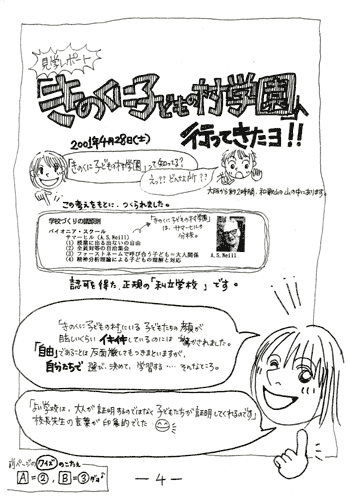 見学レポート
「きのくに子どもの村学園」へ
2001年4月28日(土)
行ってきたヨ!!
「きのくに子どもの村学園」って知ってる?
えっ?? どんな所??
大阪から約2時間、和歌山の山の中にあります。
この考えをもとに、つくられました。
学校づくりの諸原則
パイオニア・スクール
サマーヒル (A.S.Neill)
(1) 授業に出る出ないの自由
(2) 全員対等の自治集会
(3) ファーストネームで呼び合う子ども=大人関係
(4) 精神分析理論による子どもの理解と対応
「きのくに子どもの村学園」
は、サマーヒルの
A.S.Neill
認可を得た、正規の「私立学校」です。
「きのくに子どもの村にいる子どもたちの顔が
イキイキしているのには驚かされました。
「自由」であることは反面厳しさもつきまといますが、
自分たちで 選び、決めて、学習する … そんなところ。
「よい学校は、大人が証明するのではなく子どもたちが証明してくれるのです」
校長先生の言葉が印象的でした
前ページのクイズのこたえ
A=②, B=③
-4-